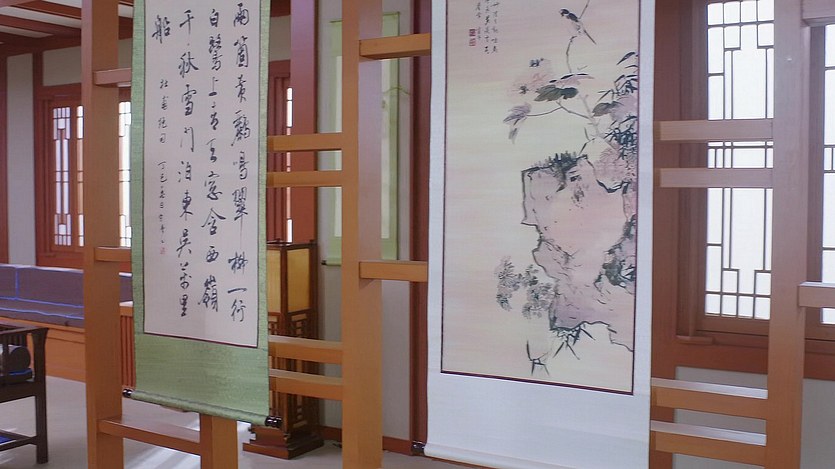 兩箇黃鸝鳴翠柳一行
白鷺上青天窓含西嶺
千秋雪門泊東吳萬里
船
杜甫絕句 丁巳